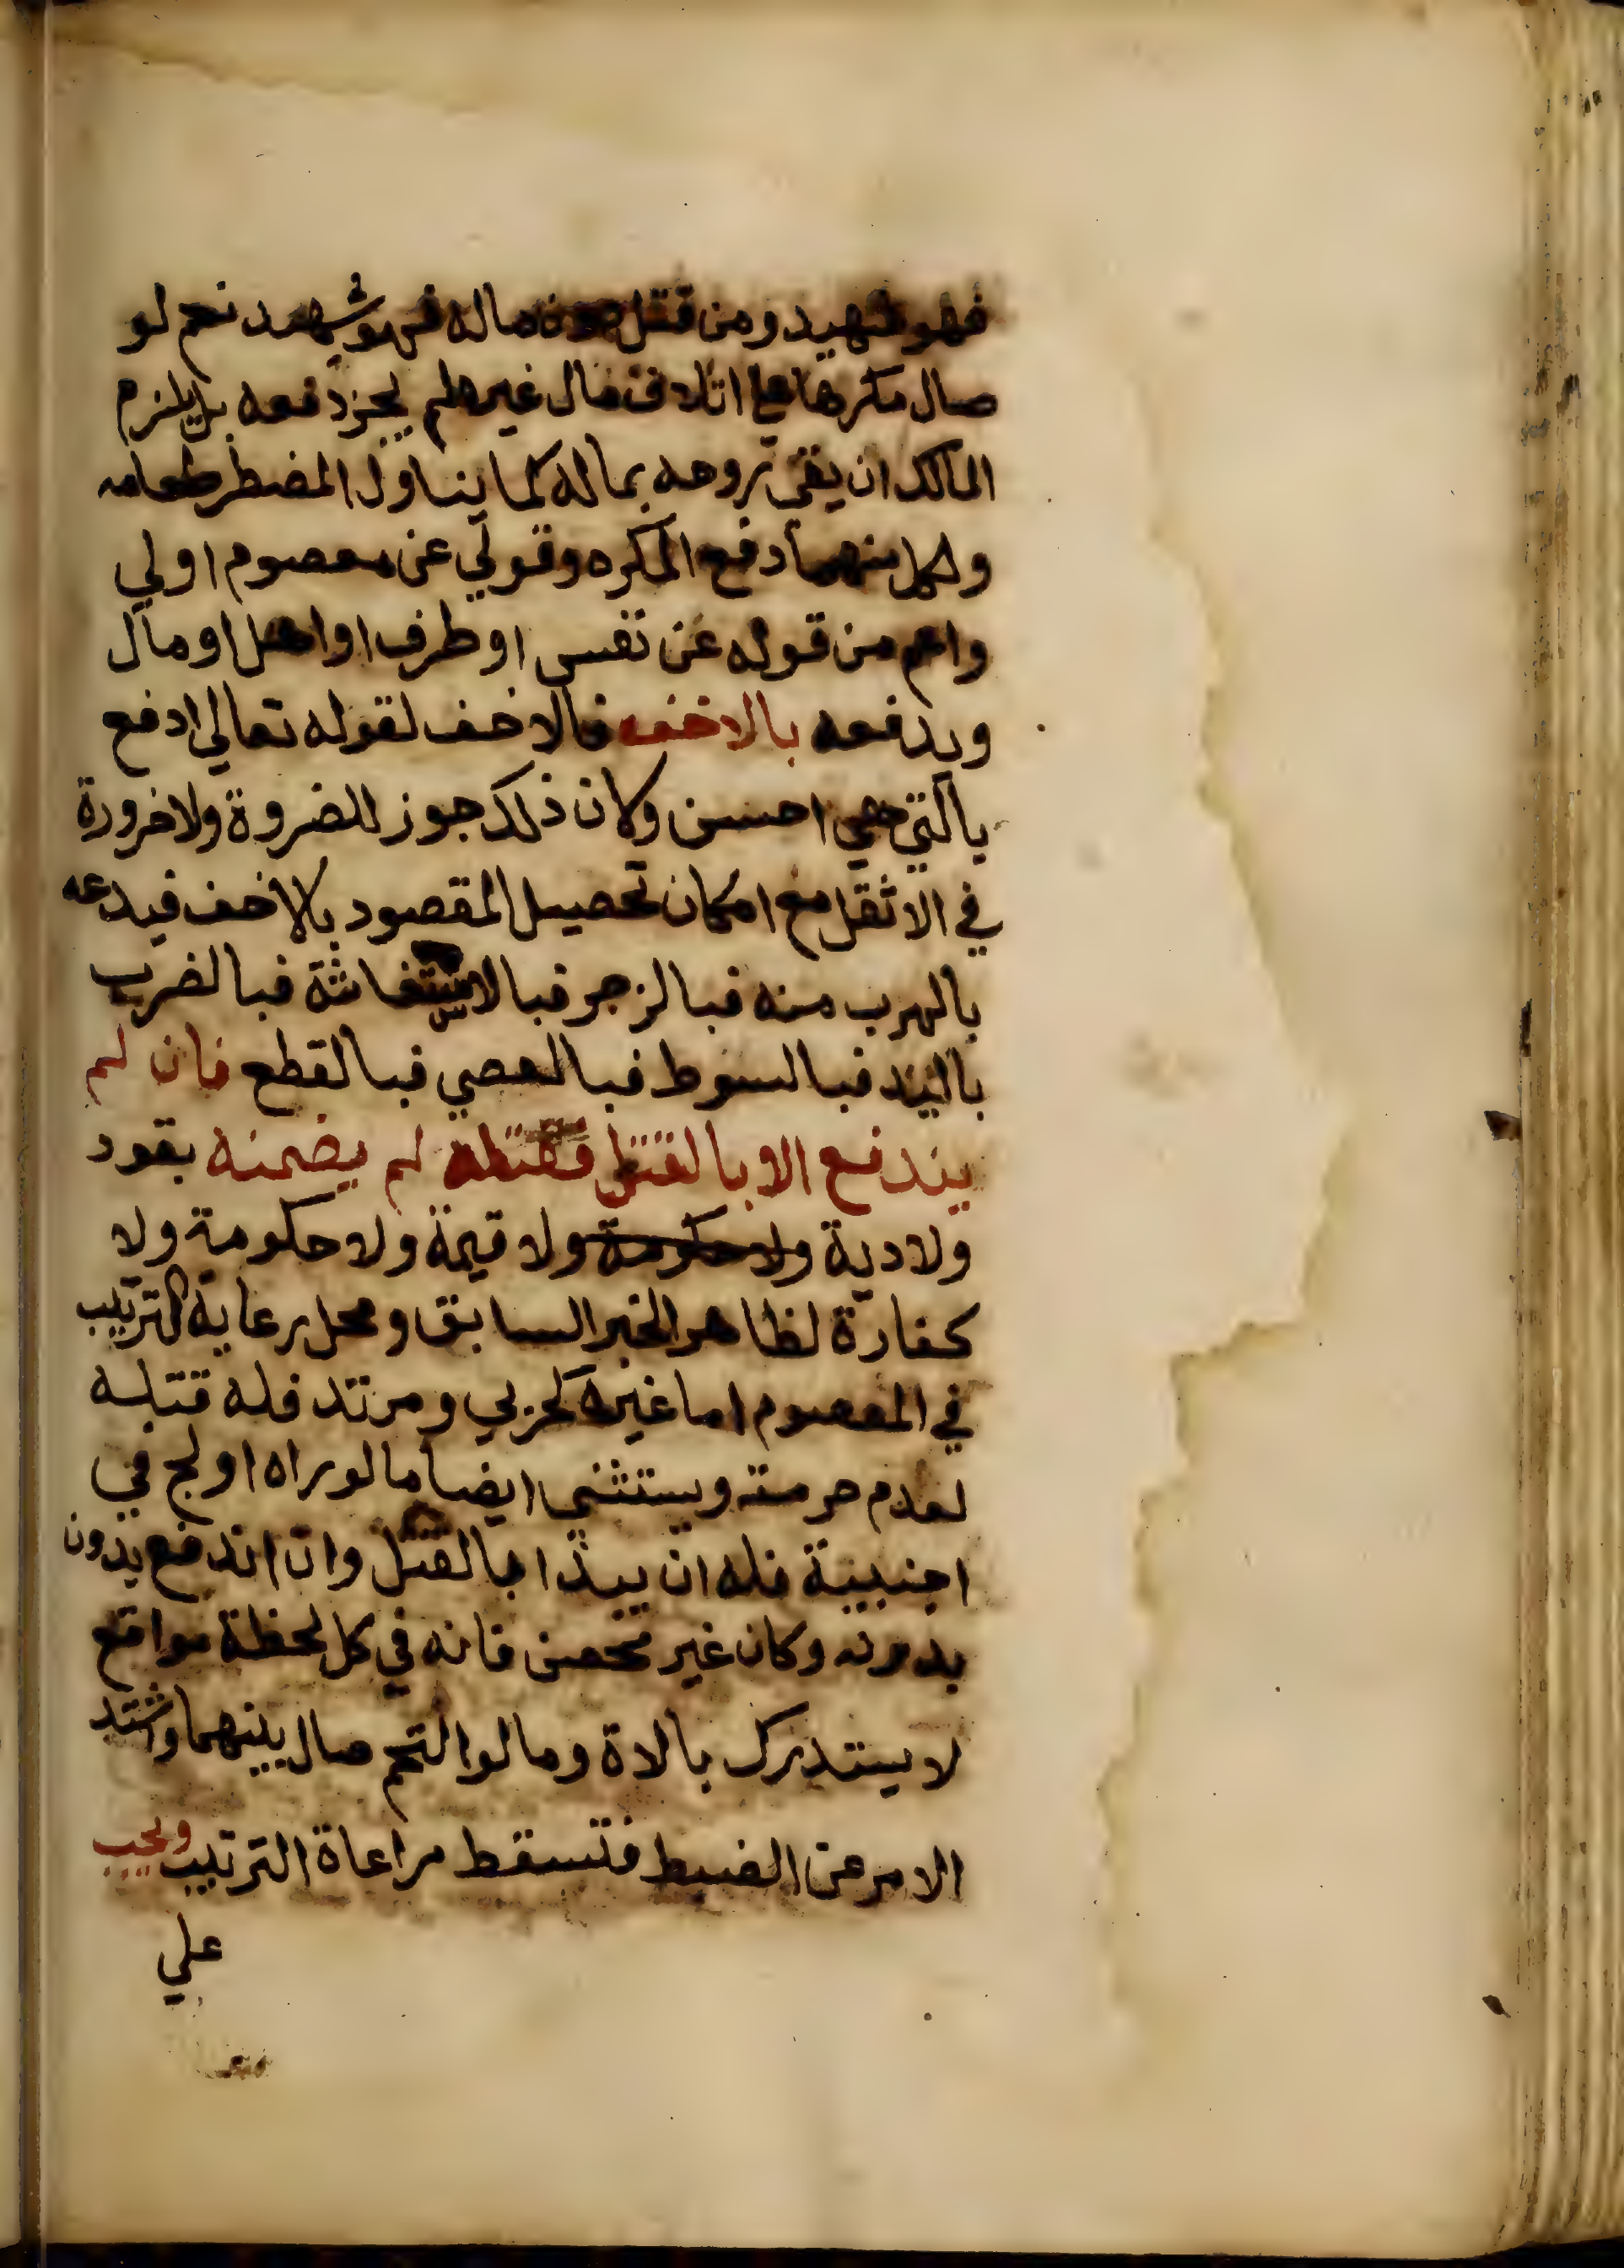 فهو شهيد ومن قتل دون ماله فهو شهيد نعم لو
صال مكرها على اتلاف مال غيره لم يجز دفعه بل يلزم
المالك ان يقي روحه بماله كما يناول المضطر طعامه
ولكل منهما دفع المكره وقولي عن معصوم اولي
واعم من قوله عن نفس او طرف او اهل او مال
ويدفعه بالاخف فالاخف لقوله تعالي ادفع
بالتي هي احسن وكان ذلك جوز للضروة ولا ضرورة
في الاثقل مع امكان تحصيل المقصود بالاخف فيدعه
بالهرب منه فبالزجر فبالاستغاثة فبالضرب
باليد فبالسوط فبالعصي فبالقطع فان لم
يندفع الا بالقتل فقتله لم يضمنه بقود
ولا دية ولا حكومة ولا قيمة ولا حكومة ولا
كفارة لظاهر الخبر السابق ومحل رعاية الترتيب
في المعصوم اما غيره كحربي ومرتد فله قتله
لعدم حرمته ويستثني ايضا ما لو راه اولج في
اجنبية فله ان يبدا بالقتل وان اندفع بدون
بدونه وكان غير محصن فانه في كل لحظة مواقع
لا يستدرك بالاة وما لو التحم صال بينهما واشتد
الامر عن الضبط فتسقط مراعاة الترتيب ويجب
علي